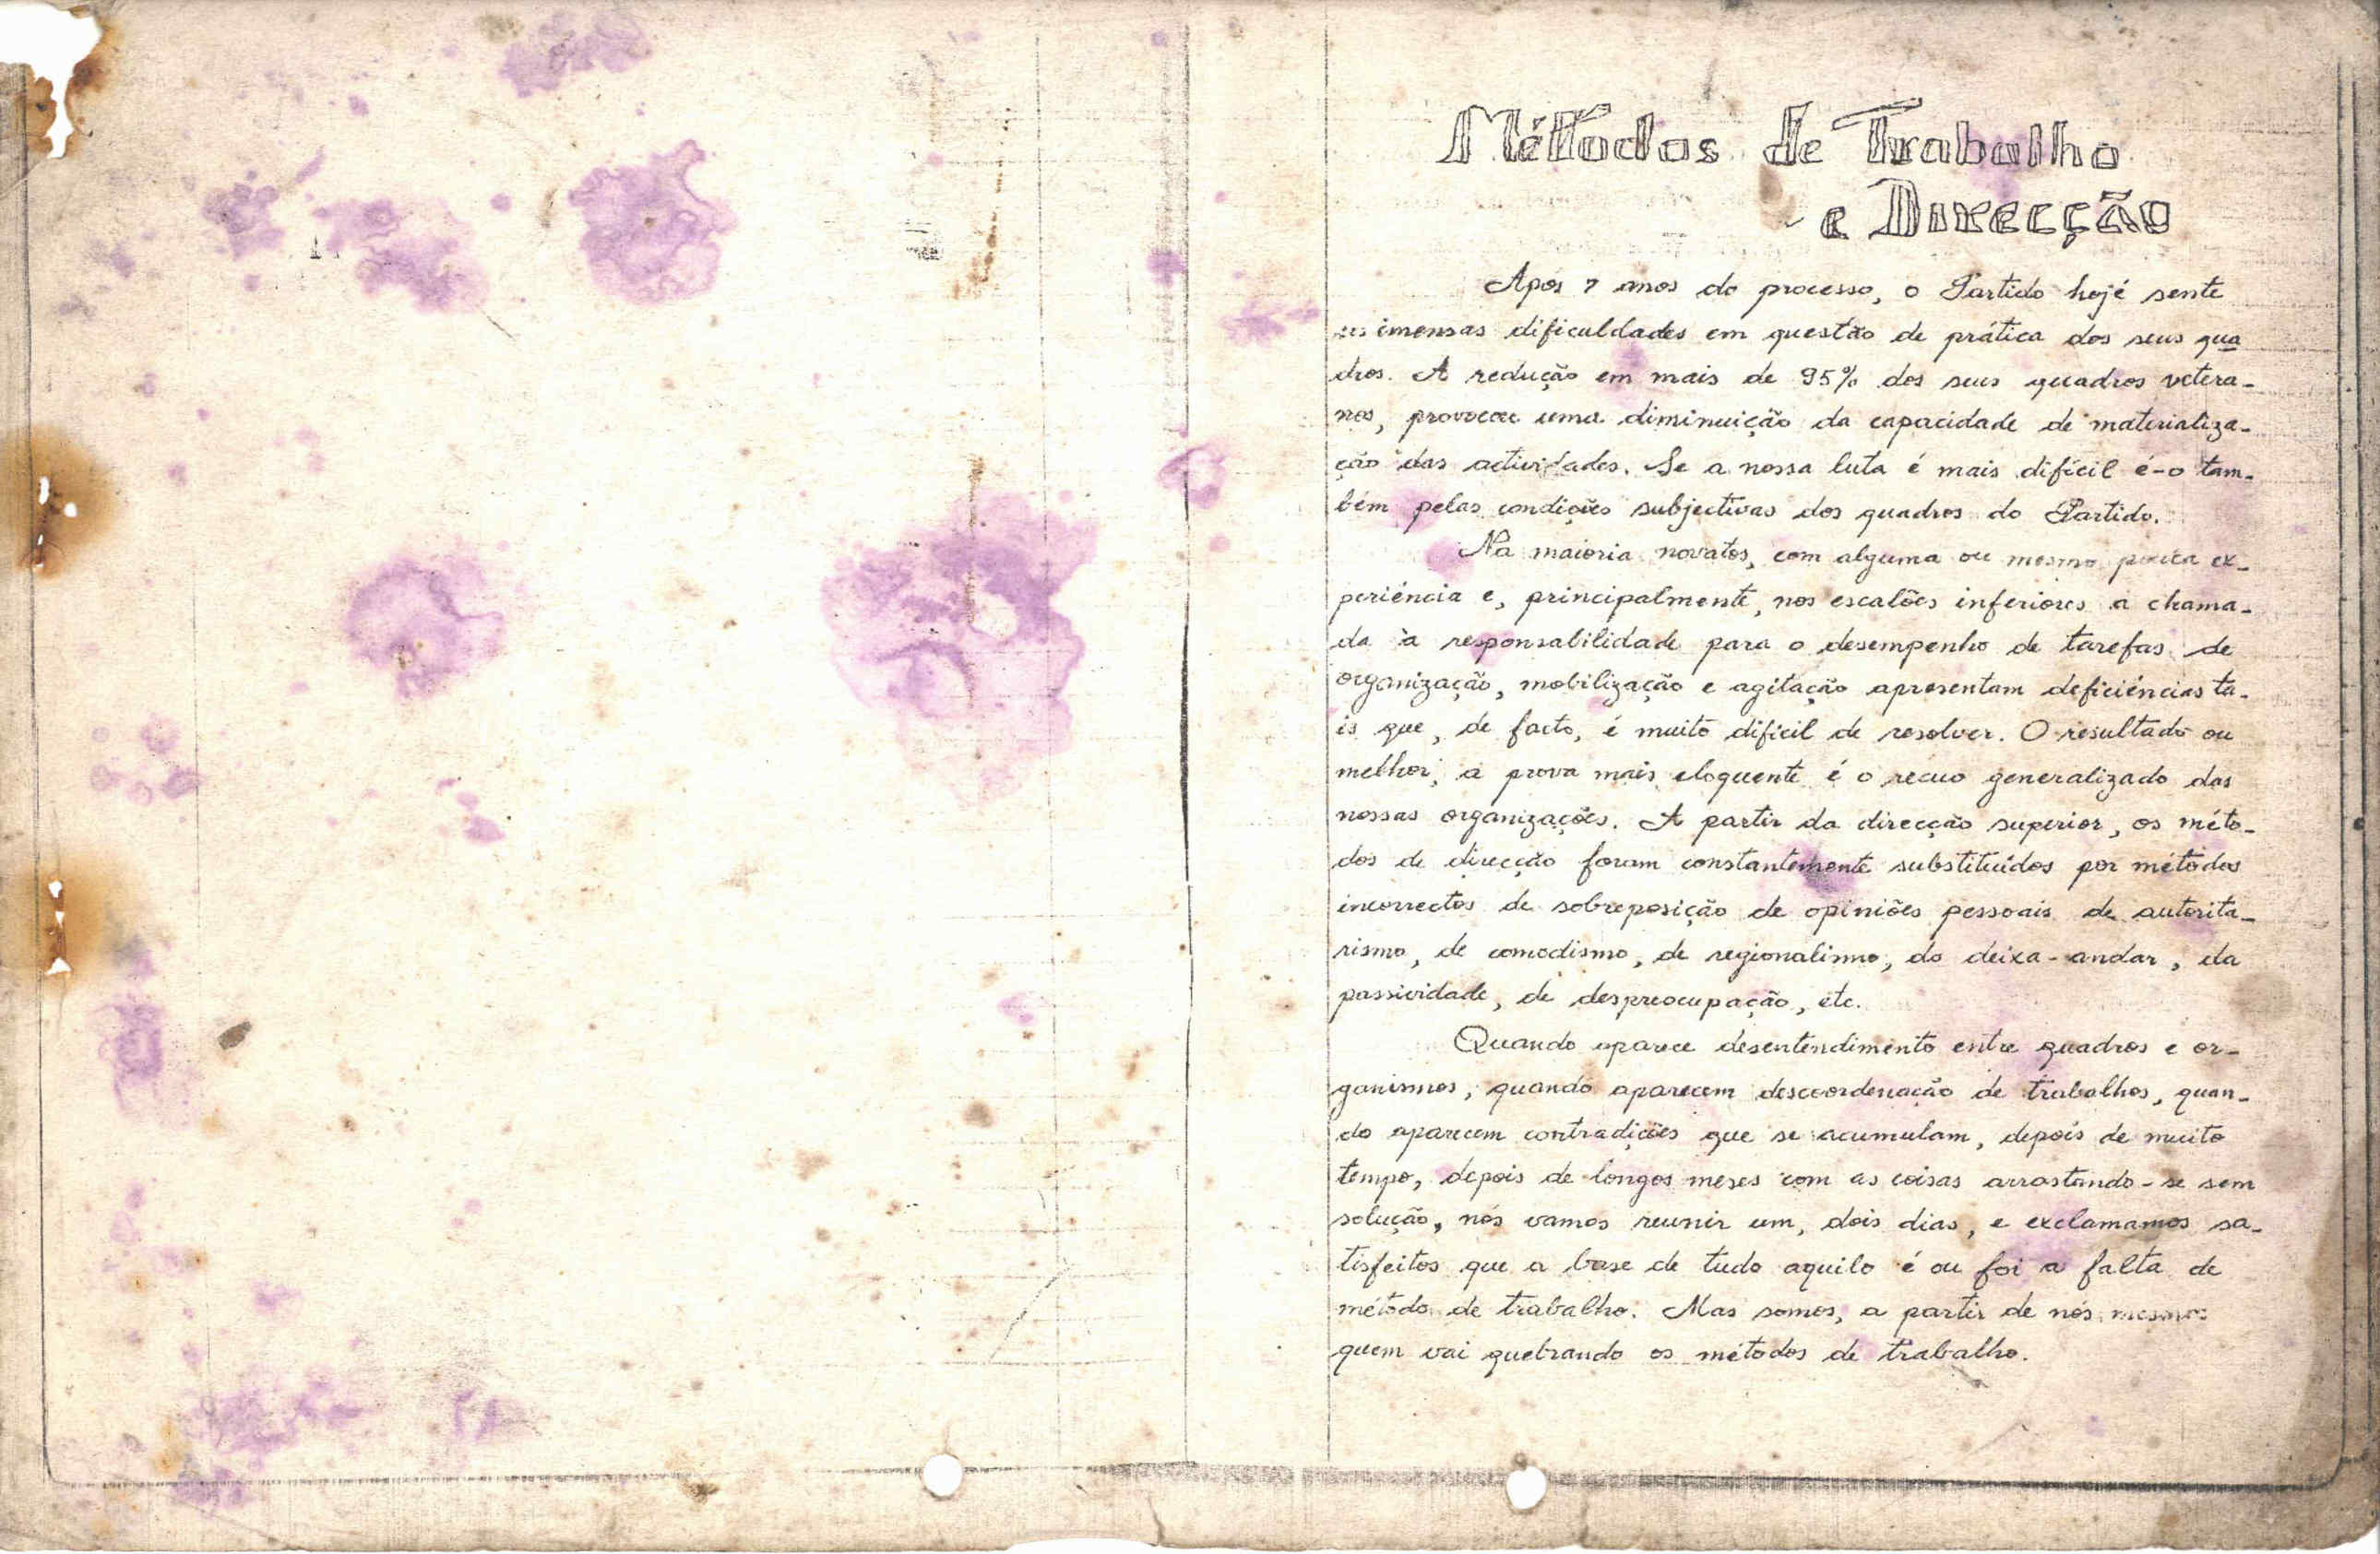 Métodos de Trabalho
e Direcção
Após 7 anos do processo, o Partido hojé sente
as imensas dificuldades em questão de prática dos seus qua
dros. A redução em mais de 95% dos seus quadros vetera-
nos, provocou uma diminuição da capacidade de materializa-
ção das actividades. Se a nossa luta é mais difícil é-o tam-
bém pelas condições subjectivas dos quadros do Partido.
Na maioria novatos, com alguma ou mesmo pouca ex-
periência e, principalmente, nos escalões inferiores a chama-
da à responsabilidade para o desempenho de tarefas de
organização, mobilização e agitação apresentam deficiências ta-
is que, de facto, é muito dificil de resolver. O resultado ou
melhor, a prova mais eloquente é o recuo generalizado das
nossas organizações. A partir da direcção superior, os méto-
dos de direcção foram constantemente substituídos por métodos
incorrectos de sobreposição de opiniões pessoais de autorita-
rismo, de comodismo, de regionalismo, do deixa-andar, da
passividade, de despreocupação, etc.
Quando aparece desentendimento entre quadros e or-
ganismos, quando aparecem descoordenação de trabalhos, quan-
do aparecem contradições que se acumulam, depois de muito
tempo, depois de longos meses com as coisas arrastando-se sem
solução, nós vamos reunir um, dois dias, e exclamamos sa-
tisfeitos que a base de tudo aquilo é ou foi a falta de
método de trabalho. Mas somos, a partir de nós mesmos
quem vai quebrando os métodos de trabalho.